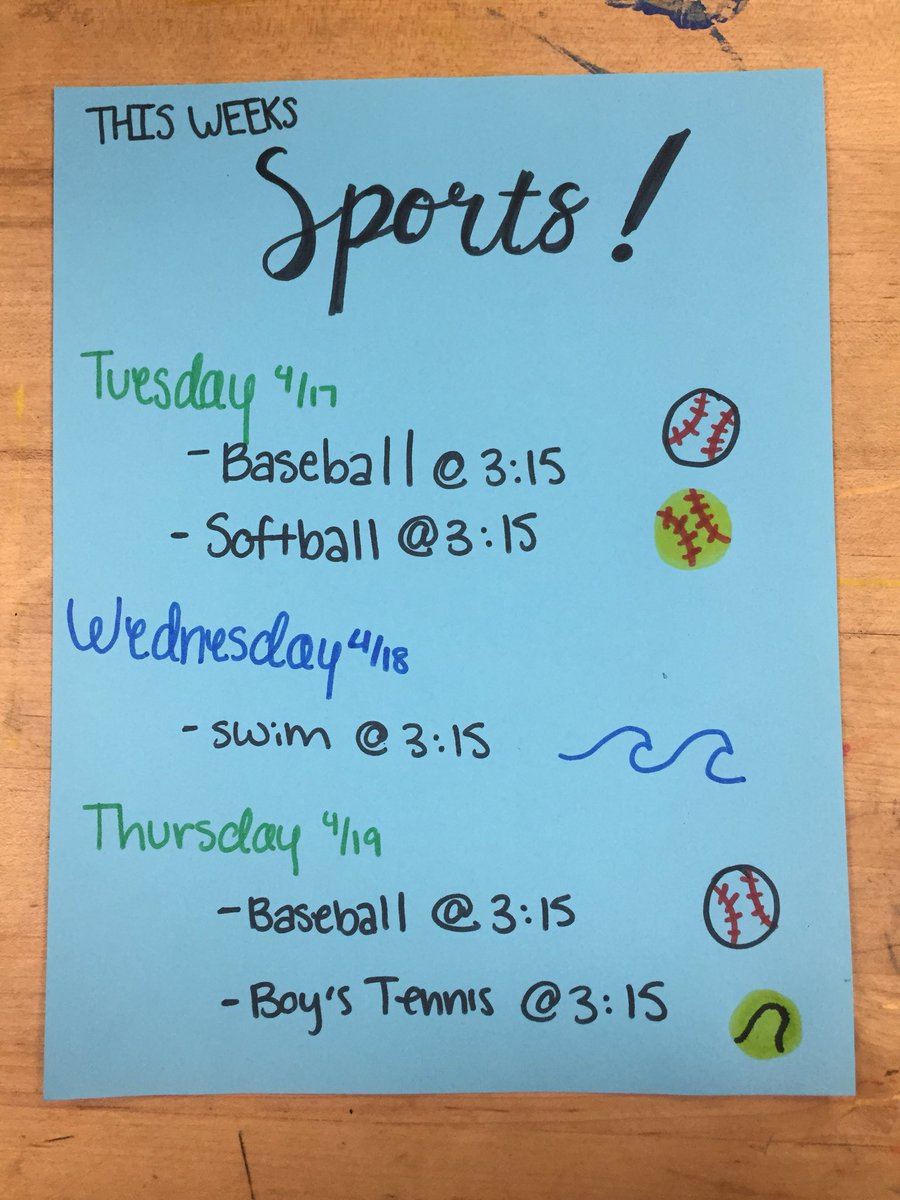 THIS WEEKS
Sports!
Tuesday 4/17
- Baseball @ 3:15
- Softball @ 3:15
Wednesday 4/18
- swim @ 3:15
Thursday 4/19
- Baseball @ 3:15
- Boy's Tennis @ 3:15